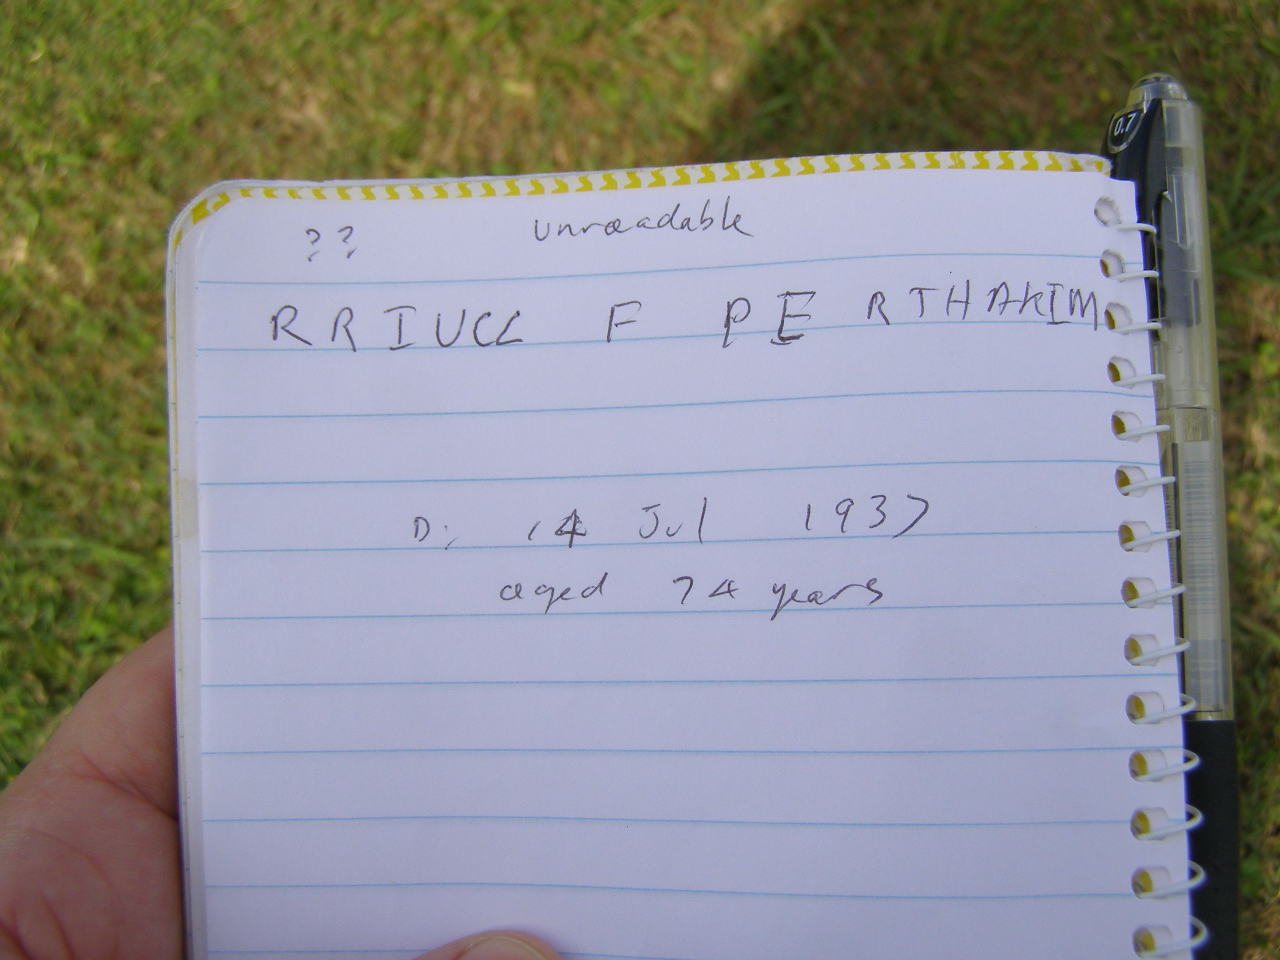 ?? unreadable
RRIUCL F PE RTHAKIM
D: 14 Jul 1937
aged 74 years
0.7